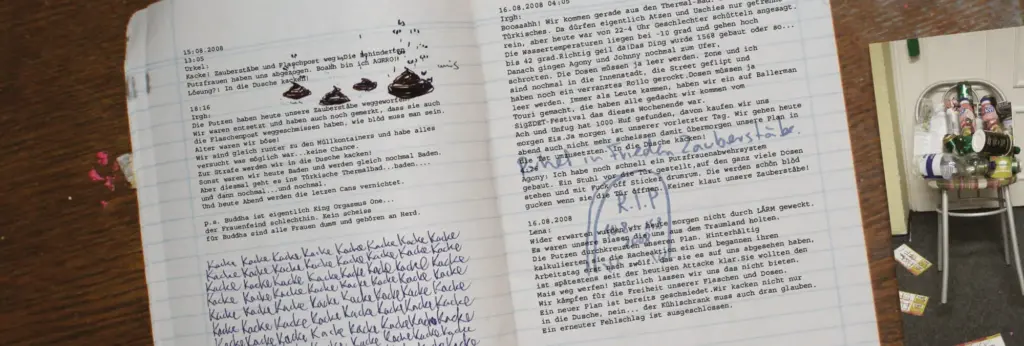 15;08.2008
13:05
Urkel:
Kacke! Zauberstäbe und Flaschpost weg.
Putzfrauen haben uns abgezogen. Boaah bin ich AGRRO!!
Lösung?: In die Dusche kacken!
18:16
Irgh:
Die Putzen haben heute unsere Zauberstäbe weggeworfen
Wir waren entsetzt und haben auch noch gemerkt, dass sie auch
die Flaschenpost weggeschmissen haben, wie blöd muss man sein.
Alter waren wir böse!
Wir sind gleich runter zu den Müllkontainern und habe alles
versucht was möglich war...keine Chance.
Zur Strafe werden wir in die Dusche kacken!
Sonst waren wir heute Baden und werden gleich nochmal Baden.
Aber diesmal geht es ins Türkische Thermalbad...baden....
und dann nochmal...und nochmal.
Und heute Abend werden die letzen Cans vernichtet.
p.s. Buddha ist eigentlich King Orgasmus One...
der Frauenfeind schlechthin. Kein scheiss
für Buddha sind alle Frauen dumm und gehören an Herd.
Kacke Kacke Kacke Kacke Kacke Kacke Kacke
Kacke Kacke Kacke Kacke Kacke Kacke Kacke
Kacke Kacke Kacke Kacke Kacke Kacke Kacke
Kacke Kacke Kacke Kacke Kacke Kacke Kacke
Kacke Kacke Kacke Kacke Kacke Kacke Kacke
Kacke Kacke Kacke Kacke Kacke Kacke Kacke
Kacke Kacke Kacke Kacke Kacke Kacke Kacke
16.08.2008 04:05
Irgh:
Booaaahh! Wir kommen gerade aus den Thermal-Bad.
Türkisches. Da dörfen eigentlich Atzen und Uschies nur getrennt
rein, aber heute war von 22-4 Uhr Geschlechter schütteln angesagt.
Die Wassertemperaturen liegen bei -10 grad und gehen hoch
bis 42 grad.Richtig geil da!Das Ding wurde 1568 gebaut oder so...
Danach gingen Agony und Johnny nochmal zum Ufer,
schrotten. Die Dosen müssen ja leer werden. Zone und ich
sind nochmal in die Innenstadt, die Street geflipt und
haben noch ein verranztes Rollo gerockt.Dosen müssen ja
leer werden. Immer als Leute kammen, haben wir ein auf Ballerman
Touri gemacht, die haben alle gedacht wir kommen vom
SigZDET.Festival das dieses Wochenende war.
Ach und Umfug hat 1000 Huf gefunden, davon kaufen wir uns
morgen Eis.Ja morgen ist unserer vorletzter Tag. Wir gehen heute
abend auch nicht mehr scheissen damit übermorgen unsere Plan in
die Tat umgesetzten "In die Dusche kacken!
Ruhet in Frieden Zauberstäbe.
Agony: Ich habe noch schnell ein Putzfrauenabwehrsystem
gebaut. Ein Stuhl vor die Tür gestellt,auf den ganz viele Dosen
stehen und mit Fuck off Sticker drumrum. Die werden schön blöd
gucken wenn sie die Tür öffnen. Keiner klaut unsere Zauberstäbe!
R.I.P
16.08.2008
Lena:
Wider erwarten wurden wir heute morgen nicht durch LÄRM geweckt.
Es waren unsere Blasen die uns aus dem Traumland holten.
Die Putzen durchkreuzten unseren Plan. Hinterhältig
kalkulierten sie die Kackeaktion ein und begannen ihren
Arbeitstag erst nach zwölf. Das sie es auf uns abgesehen haben,
ist spätestens seit der heutigen Attacke klar.Sie wollten den
Mais weg werfen! Natürlich lassen wir uns das nicht bieten.
Wir kämpfen für die Freiheit unserer Flaschen und Dosen.
Ein neuer Plan ist bereits geschmiedet.Wir kacken nicht nur
in die Dusche, nein... der Kühlschrank muss auch dran glauben.
Ein erneuter Fehlschlag ist ausgeschlossen.